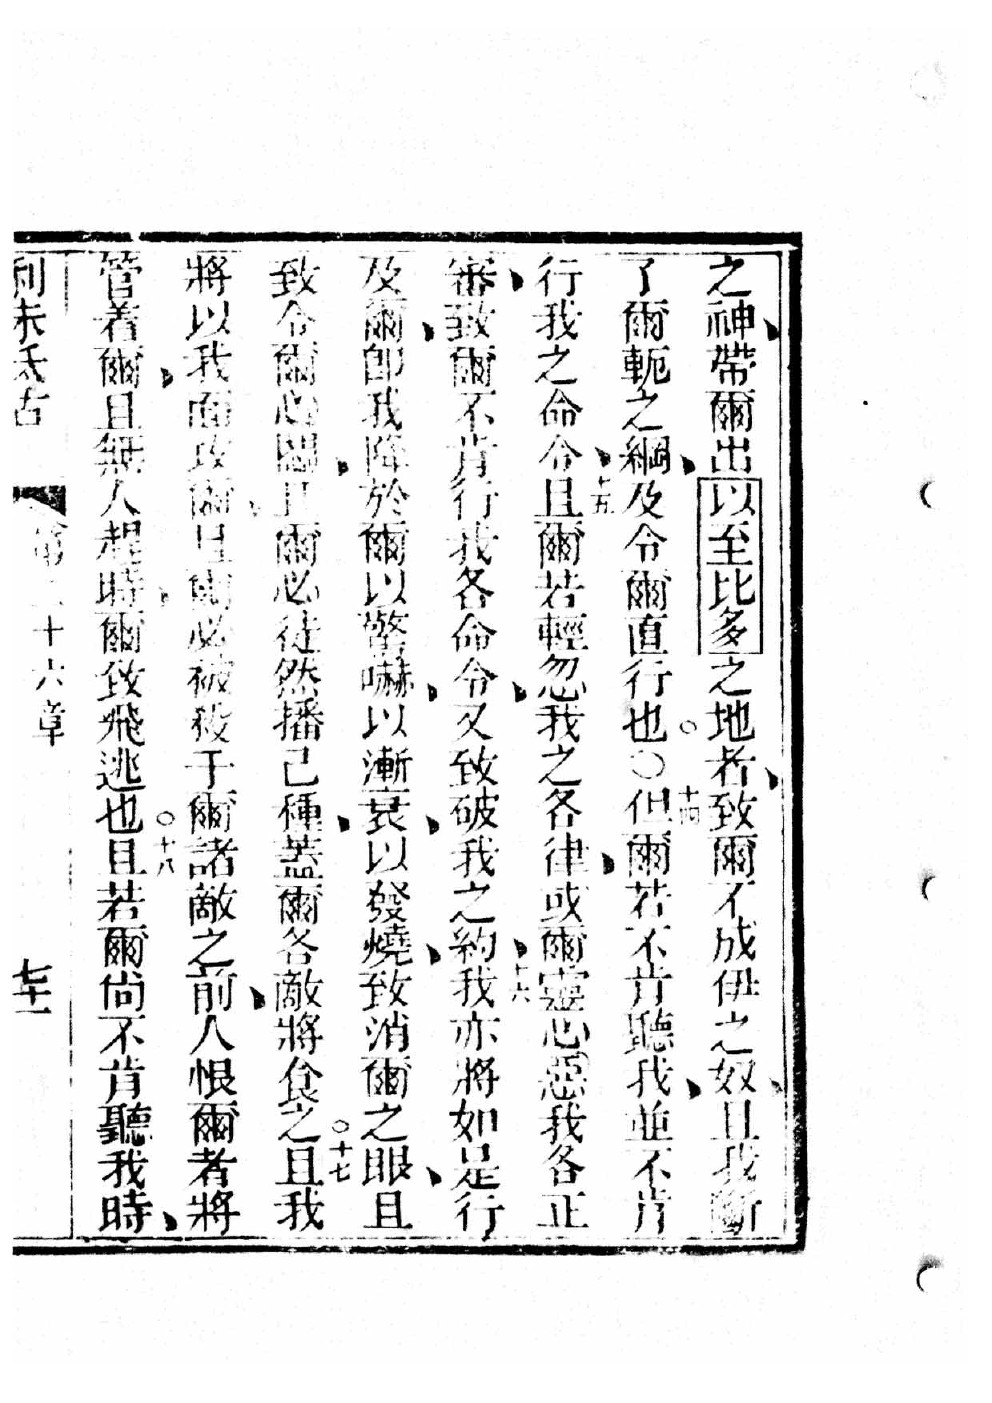 之神帶爾出以至比多之地者致爾不成伊之奴且我斷
了爾軛之綱及令爾直行也○十四但爾若不肯聽我並不肯
行我之命令十五且爾若輕忽我之各律或爾靈心惡我各正
審致爾不肯行我各命令又致破我之約十六我亦將如是行
及爾卽我降於爾以驚嚇以漸衰以發燒致消爾之眼且
致令爾心悶且爾必徒然播己種蓋爾各敵將食之十七且我
將以我面攻爾且爾必被殺于爾諸敵之前人恨爾者將
管着爾且無人趕時爾致飛逃也十八且若爾尚不肯聽我時
利未氐古 第二十六章 七十一